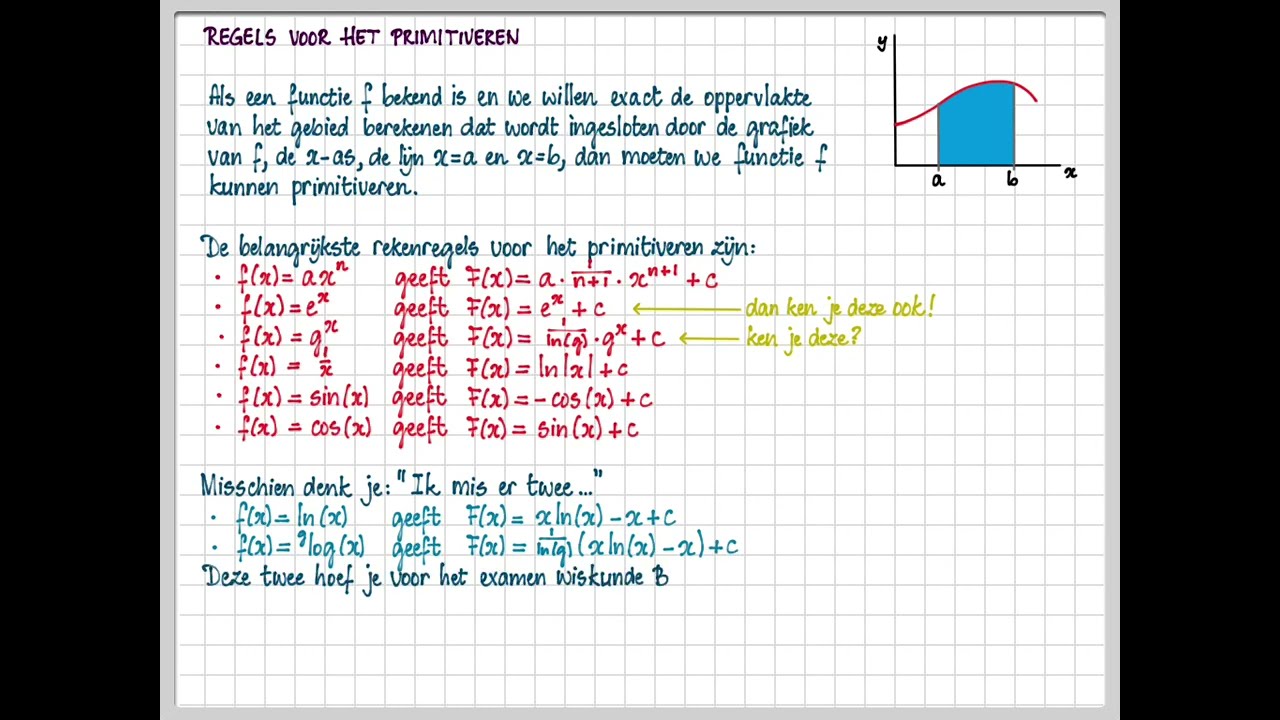 REGELS VOOR HET PRIMITIVEREN
y
a b x
Als een functie f bekend is en we willen exact de oppervlakte
van het gebied berekenen dat wordt ingesloten door de grafiek
van f, de x-as, de lijn x=a en x=b, dan moeten we functie f
kunnen primitiveren.
De belangrijkste rekenregels voor het primitiveren zijn:
· f(x) = axⁿ geeft F(x) = a · 1/(n+1) · xⁿ⁺¹ + c
· f(x) = eˣ geeft F(x) = eˣ + c ← dan ken je deze ook!
· f(x) = gˣ geeft F(x) = 1/ln(g) · gˣ + c ← ken je deze?
· f(x) = 1/x geeft F(x) = ln|x| + c
· f(x) = sin(x) geeft F(x) = -cos(x) + c
· f(x) = cos(x) geeft F(x) = sin(x) + c
Misschien denk je: "Ik mis er twee..."
· f(x) = ln(x) geeft F(x) = x ln(x) - x + c
· f(x) = ᵍlog(x) geeft F(x) = 1/ln(g) (x ln(x) - x) + c
Deze twee hoef je voor het examen wiskunde B